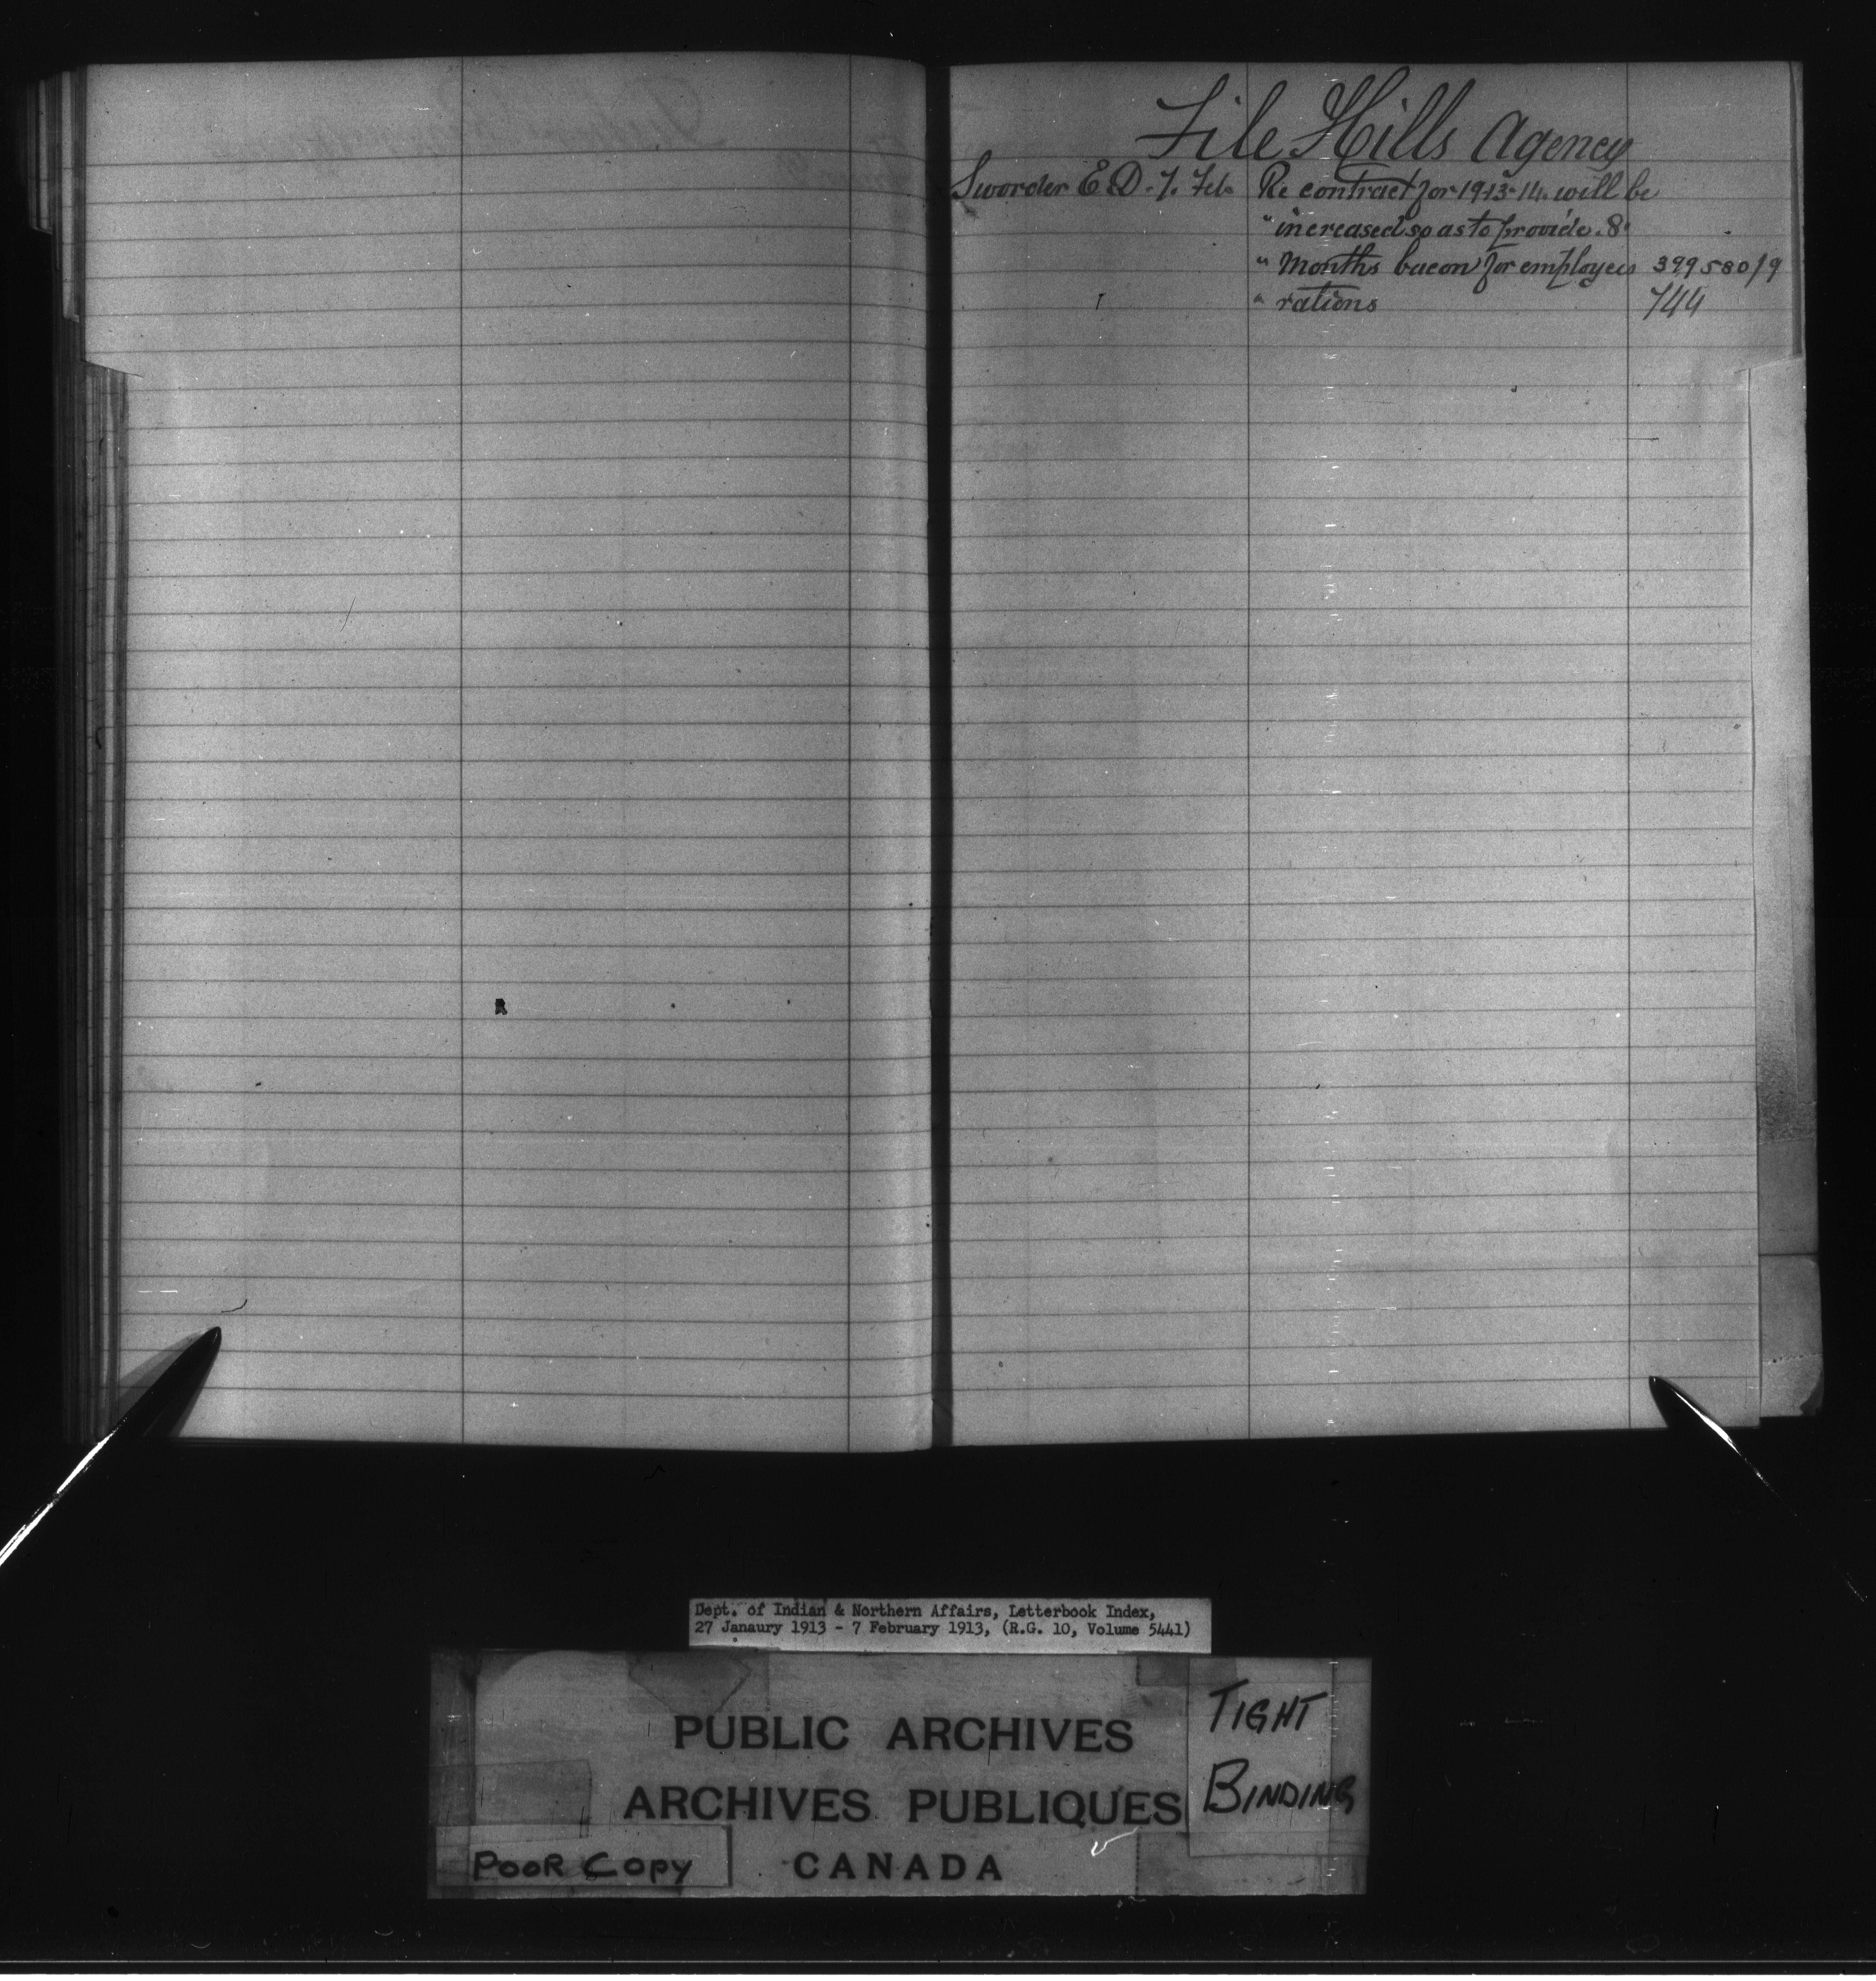 File Hills Agency
Sworder E D - 7. Feb Re contract for 1913-14. will be
" increased so as to provide. 8
" Months bacon for employees 399580/9
" rations 744
Dept. of Indian & Northern Affairs, Letterbook Index,
27 Janaury 1913 - 7 February 1913, (R.G. 10, Volume 5441)
PUBLIC ARCHIVES
ARCHIVES PUBLIQUES
CANADA
TIGHT
BINDING
POOR COPY